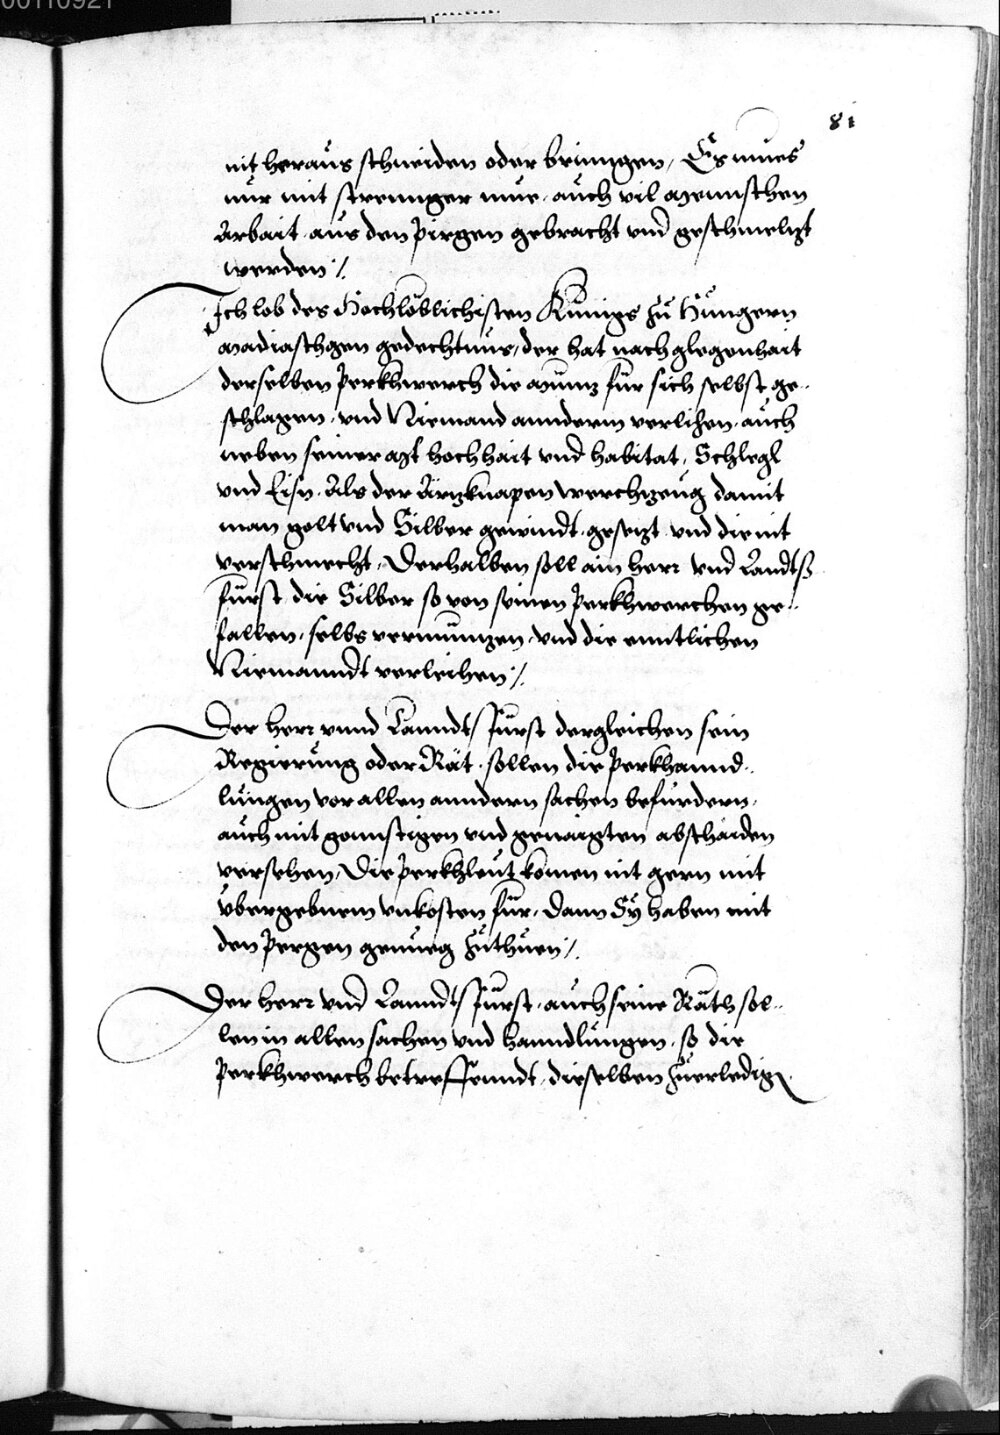 00110921
81
nit heraus schneiden oder bringgen, Es mues
nur mit strennger mue, auch vil mennschen
Arbait aus den Pirgen gebracht vnd geschmeltzt
werden /.
Ich lob des Hochlöblichisten Künigs zu Hungern
Madiaschgen gedechtnus, der hat nach glegenhait
derselben Perkhwerch die Münz für sich selbst ge-
schlagen, vnd Niemand anndern verlihen, auch
neben seiner hochhait vnd habitat, Schlegl
vnd Eisn, Als der Ärtzknapen werchzeug damit
man golt vnd Silber gewindt, gesetzt, vnd die nit
verschmecht, Derhalben soll ain herr vnd Landtß
fürst die Silber so von seinen Perkhwerchen ge-
fallen, selbs vermünzen, vnd die enntlichen
Niemanndt verleihen /.
Der herr vnnd Lanndts Fürst dergleichen sein
Regierung oder Rät, sollen die Perkhannd-
lungen vor allen anndern sachen befurdern,
auch mit gonnstigen vnd genaigten abschaiden
versehen, Die Perkhleut komen nit gern mit
Vbergebnem vnkosten für, dann Sy haben mit
den Pergen genueg zuthuen /.
Der herr vnd Lanndts Fürst, auch seine Räth sol-
len in allen sachen vnd hanndlungen, so die
Perkhwerch betreffenndt, dieselben zuerledign